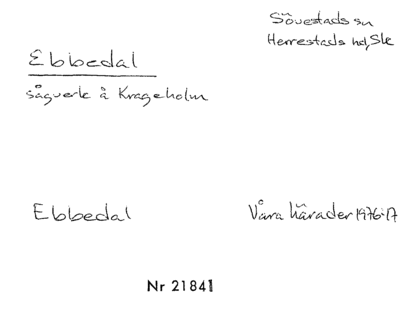 Sövestads sn
Herrestads hd, Sk
Ebbedal
sågverk å Krageholm
Ebbedal
Våra härader 1976:17
Nr 21841